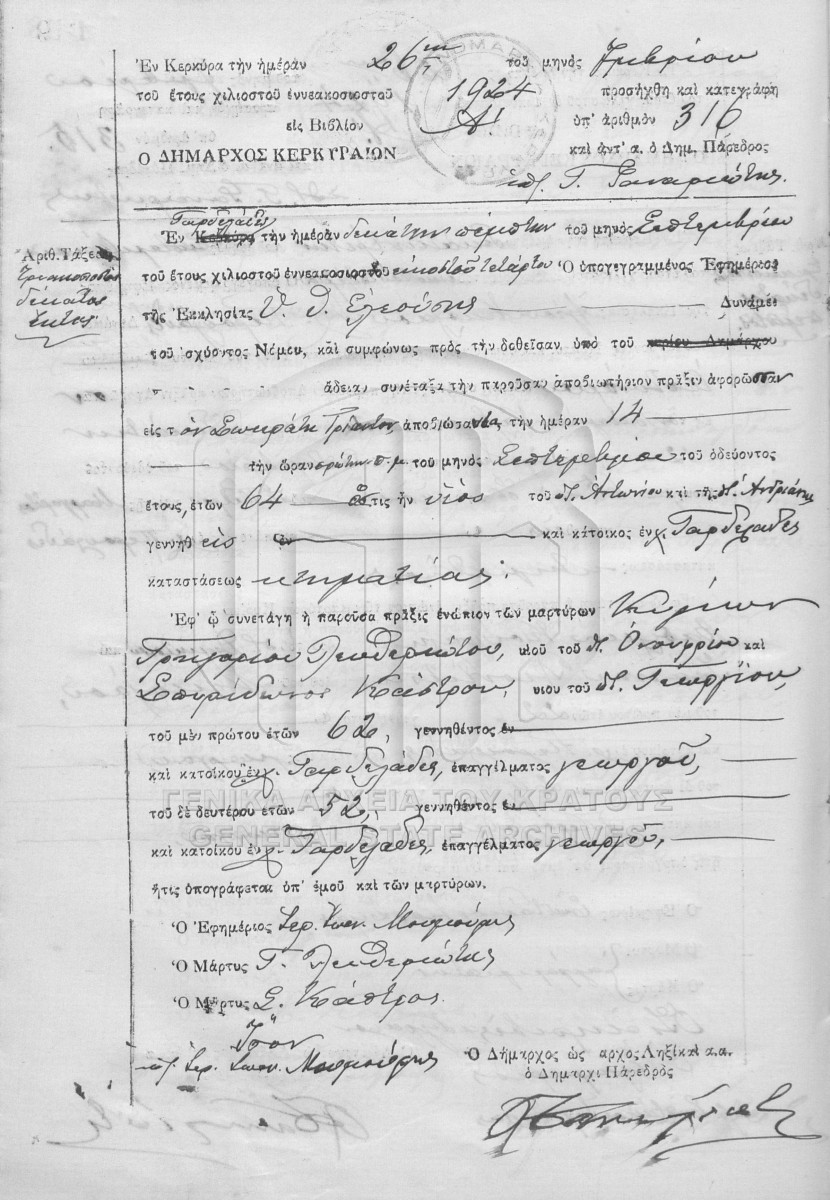 Ἐν Κερκύρᾳ τὴν ἡμέραν 26ην τοῦ μηνὸς 7μβρίου
τοῦ ἔτους χιλιοστοῦ ἐννεακοσιοστοῦ 1924 προσήχθη καὶ κατεγράφη
εἰς Βιβλίον Α! ὑπ' ἀριθμὸν 316
Ο ΔΗΜΑΡΧΟΣ ΚΕΡΚΥΡΑΙΩΝ καὶ ἀντ' α. ὁ Δημ. Πάρεδρος
Γαρδελάδες
Ἐν Κερκύρᾳ τὴν ἡμέραν δεκάτην πέμπτην τοῦ μηνὸς Σεπτεμβρίου
Ἀριθ. Τάξεως
Τριακοστὸς
δέκατος
ἕκτος
τοῦ ἔτους χιλιοστοῦ ἐννεακοσιοστοῦ εἰκοστοῦ τετάρτου Ὁ ὑπογεγραμμένος Ἐφημέριος
τῆς Ἐκκλησίας Ὑ. Θ. Ἐλεούσης Δυνάμει
τοῦ ἰσχύοντος Νόμου, καὶ συμφώνως πρὸς τὴν δοθεῖσαν ὑπὸ τοῦ κυρίου Δημάρχου
ἄδειαν συνέταξα τὴν παροῦσαν ἀποβιωτήριον πρᾶξιν ἀφορῶσαν
εἰς τὸν Σωκράτη ἀποβιώσαντα, τὴν ἡμέραν 14
τὴν ὥραν πρώτην π.μ. τοῦ μηνὸς Σεπτεμβρίου τοῦ ὁδεύοντος
ἔτους, ἐτῶν 64 ὅστις ἦν υἱὸς τοῦ π. Ἀντωνίου καὶ τῆς π. Ἀνδριάνης
γεννηθεὶς ἐν καὶ κάτοικος ἐν χ. Γαρδελάδες
καταστάσεως κτηματίας.
Ἐφ' ᾧ συνετάγη ἡ παροῦσα πρᾶξις ἐνώπιον τῶν μαρτύρων Κυρίων
Γρηγορίου Λευθεριώτου, υἱοῦ τοῦ π. Ὀνουφρίου καὶ
Σπυρίδωνος Κάστρου, υἱοῦ τοῦ π. Γεωργίου,
τοῦ μὲν πρώτου ἐτῶν 62, γεννηθέντος ἐν
καὶ κατοίκου ἐν χ. Γαρδελάδες, ἐπαγγέλματος γεωργοῦ,
ΓΕΝΙΚΑ ΑΡΧΕΙΑ ΤΟΥ ΚΡΑΤΟΥΣ
τοῦ δὲ δευτέρου ἐτῶν 52, γεννηθέντος ἐν
GENERAL STATE ARCHIVES
καὶ κατοίκου ἐν χ. Γαρδελάδες, ἐπαγγέλματος γεωργοῦ,
ἥτις ὑπογράφεται ὑπ' ἐμοῦ καὶ τῶν μαρτύρων.
Ὁ Ἐφημέριος Ἱερ.
Ὁ Μάρτυς Γ. Λευθεριώτης
Ὁ Μάρτυς Σ. Κάστρος
Ἴσον
Ὁ Δήμαρχος ὡς αρχος Ληξίκαὶ α.α.
ὁ Δημαρχι Πάρεδρὸς